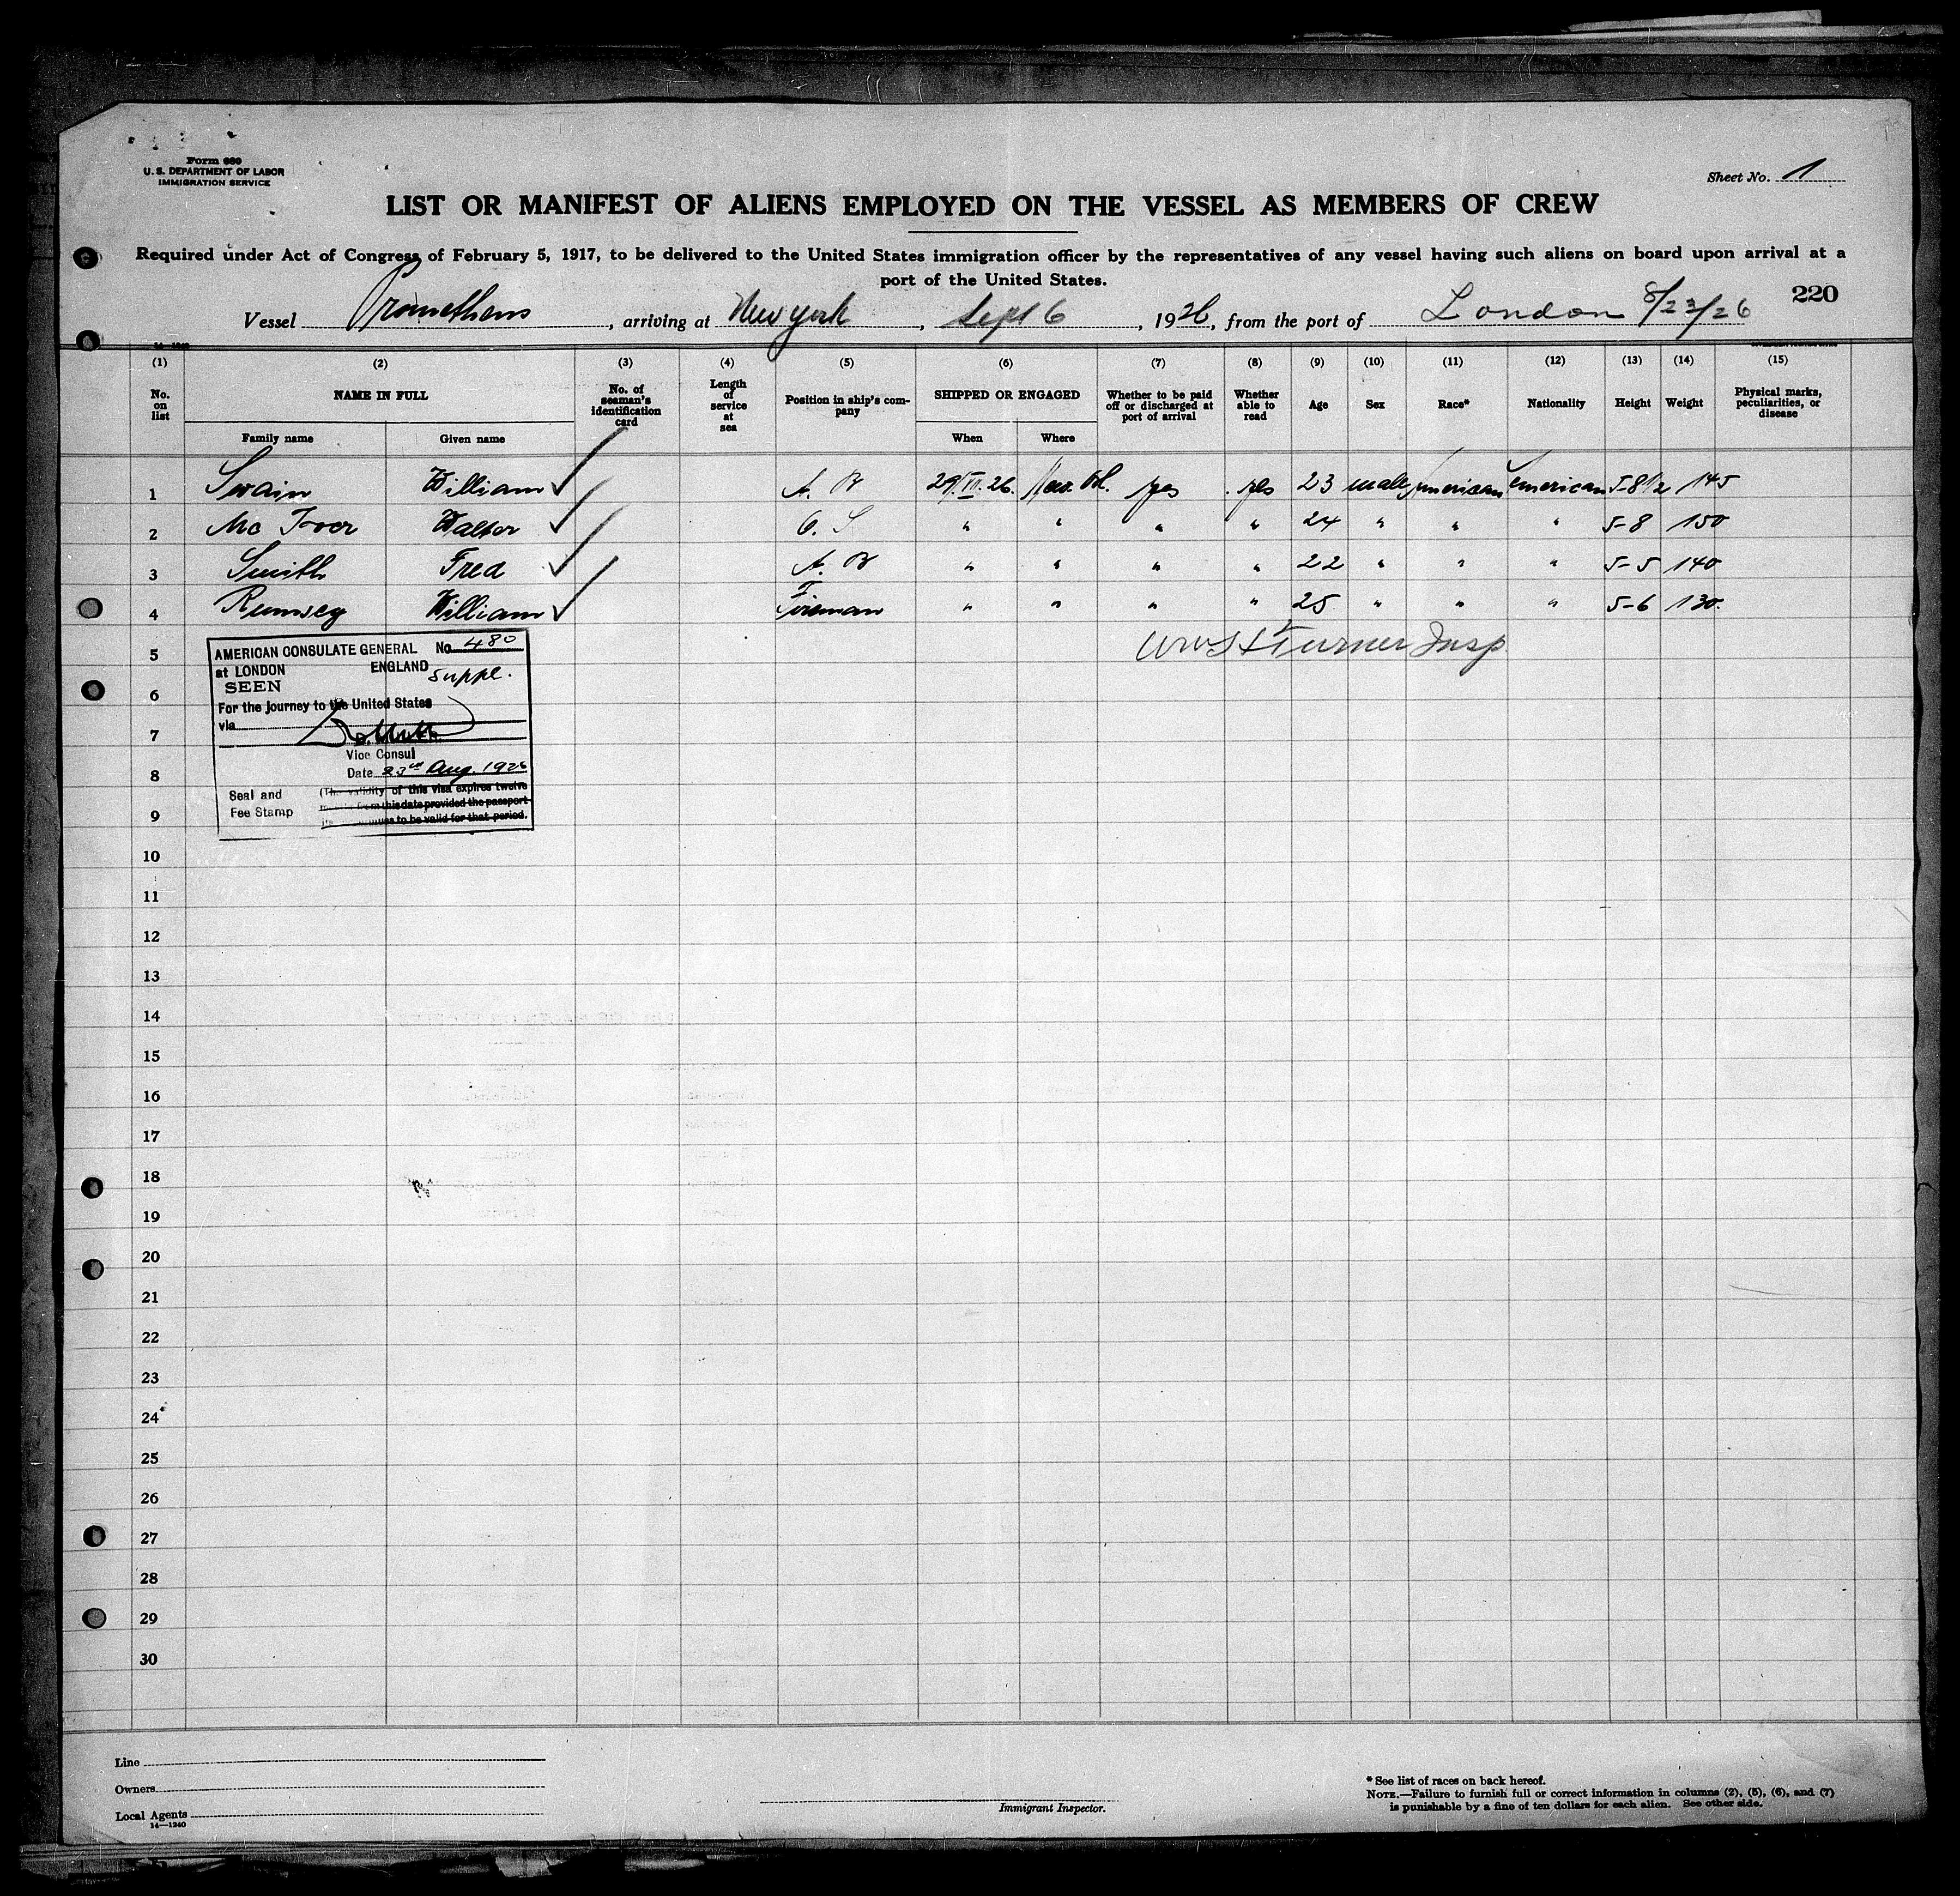 Form 680
U. S. DEPARTMENT OF LABOR
IMMIGRATION SERVICE
Sheet No. 1
LIST OR MANIFEST OF ALIENS EMPLOYED ON THE VESSEL AS MEMBERS OF CREW
Required under Act of Congress of February 5, 1917, to be delivered to the United States immigration officer by the representatives of any vessel having such aliens on board upon arrival at a
port of the United States.
220
Vessel Prometheus, arriving at New york, Sept 6, 1926, from the port of London 8/23/26
(1) (2) (3) (4) (5) (6) (7) (8) (9) (10) (11) (12) (13) (14) (15)
No. on list NAME IN FULL No. of seaman's identification card Length of service at sea Position in ship's company SHIPPED OR ENGAGED Whether to be paid off or discharged at port of arrival Whether able to read Age Sex Race* Nationality Height Weight Physical marks, peculiarities, or disease
Family name Given name When Where
1 Swain William A. B 29 VII. 26. New Orl. yes yes 23 male American American 5-8 1/2 145
2 Mc Iver Walter O. S " " " " 24 " " " 5-8 150
3 Smith Fred A. B " " " " 22 " " " 5-5 140
4 Rumsey William Fireman " " " " 25 " " " 5-6 130.
5 Turner Insp
AMERICAN CONSULATE GENERAL No. 480
at LONDON ENGLAND Suppl.
SEEN
For the journey to the United States
via
Vice Consul
Date 23rd Aug. 1926
Seal and
Fee Stamp
(The validity of this visa expires twelve
months from this date provided the passport
continues to be valid for that period.
6
7
8
9
10
11
12
13
14
15
16
17
18
19
20
21
22
23
24
25
26
27
28
29
30
Line
Owners
Local Agents
14—1240
Immigrant Inspector.
* See list of races on back hereof.
NOTE.—Failure to furnish full or correct information in columns (2), (5), (6), and (7)
is punishable by a fine of ten dollars for each alien. See other side.